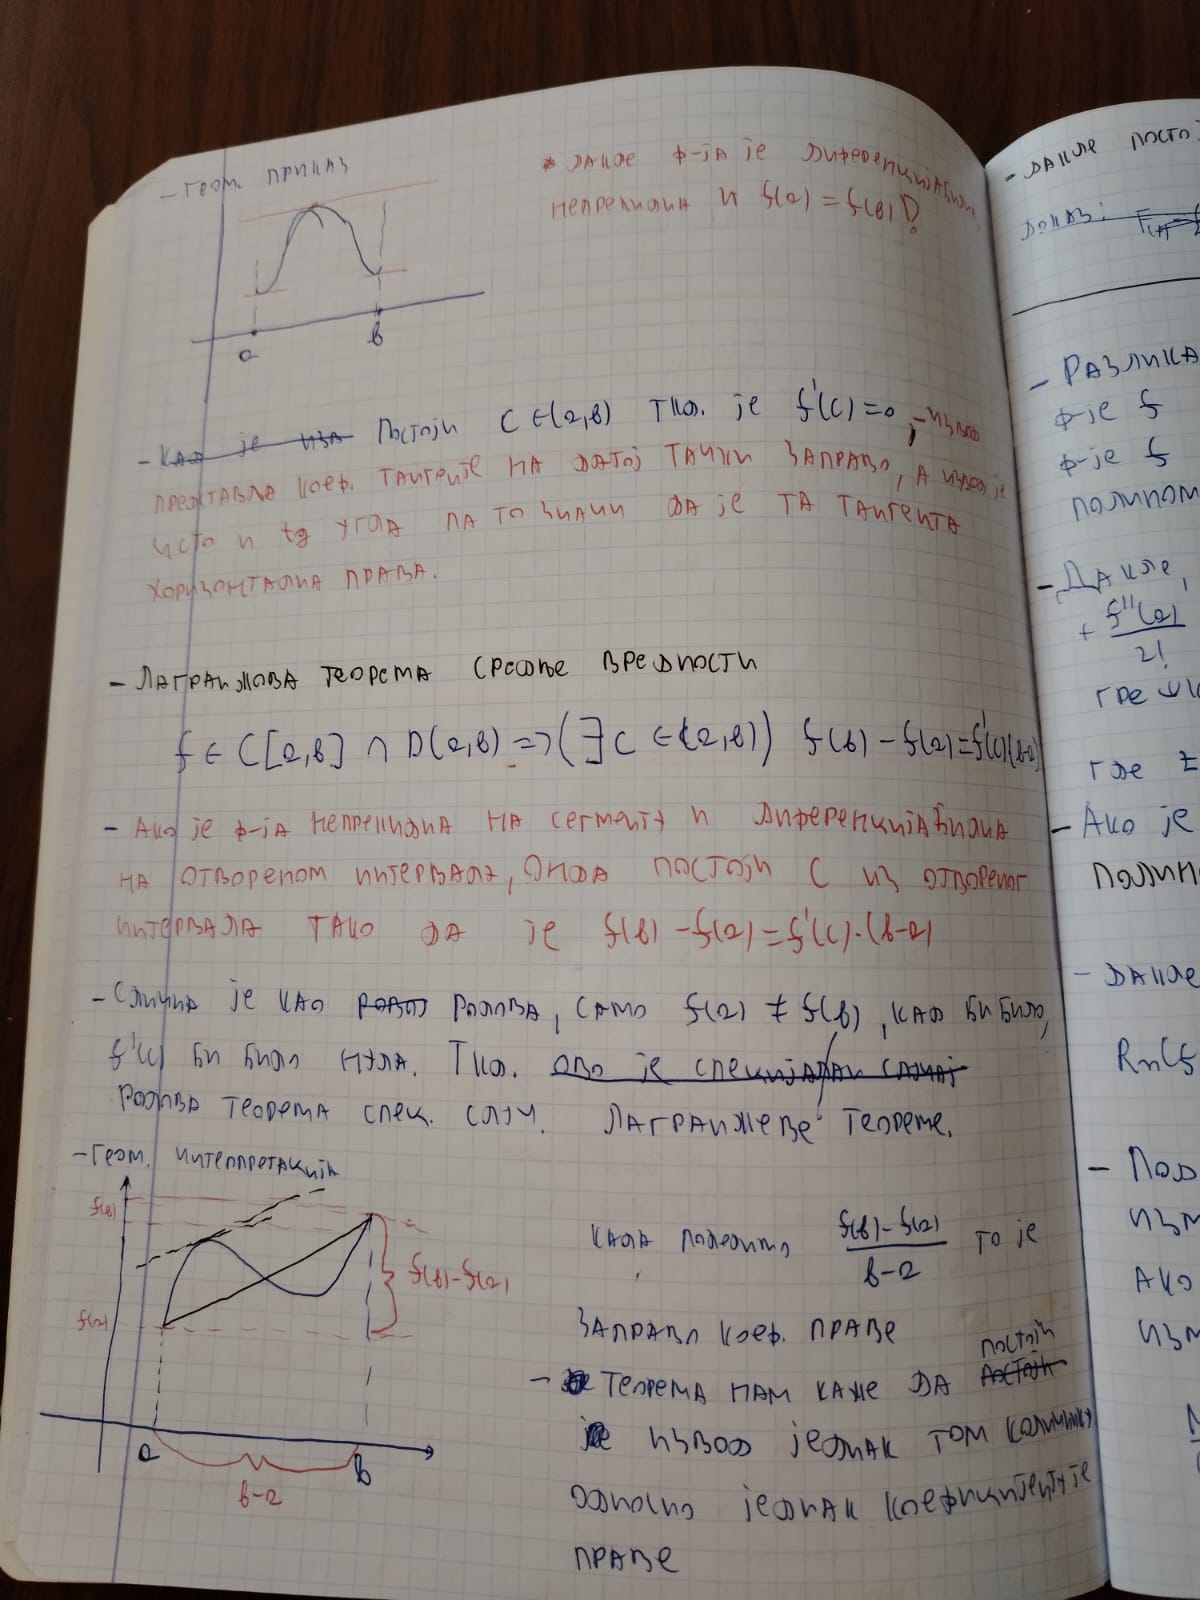 - Геом. приказ
* Дакле ф-ја је диференцијабилна,
непрекидна и f(a) = f(b)!
a
b
- Као је иза Постоји C ∈ (a,b) тко. је f'(c)=0, - извод
представља коеф. тангенте на датој тачки заправо, а извод је
исто и tg угла па то значи да је та тангента
хоризонтална права.
- Лагранжова теорема средње вредности
f ∈ C[a,b] ∩ D(a,b) => (∃ C ∈ (a,b)) f(b) - f(a) = f'(c)(b-a)
- Ако је ф-ја непрекидна на сегменту и диференцијабилна
на отвореном интервалу, онда постоји C из отвореног
интервала тако да је f(b) - f(a) = f'(c)·(b-a)
- Слична је као Ролова, само f(a) ≠ f(b), као би било,
f'(c) би било нула. Тко. ово је специјалан случај
Ролова теорема спец. случ. Лагранжеве теореме.
- Геом. интерпретација
f(b)
f(a)
f(b)-f(a)
a
b
b-a
Када поделимо f(b)-f(a) / b-a то је
заправо коеф. праве
постоји
- Теорема нам каже да постоји
је извод једнак том количнику
односно једнак коефицијенту те
праве
- Дакле посто
Доказ:
- Разлика
ф-је f
ф-је f
полином
- Дакле,
+ f''(a)
2!
где
- Ако је
полин
- Дакле
Rn(f
- Под
изм
Ако
изм